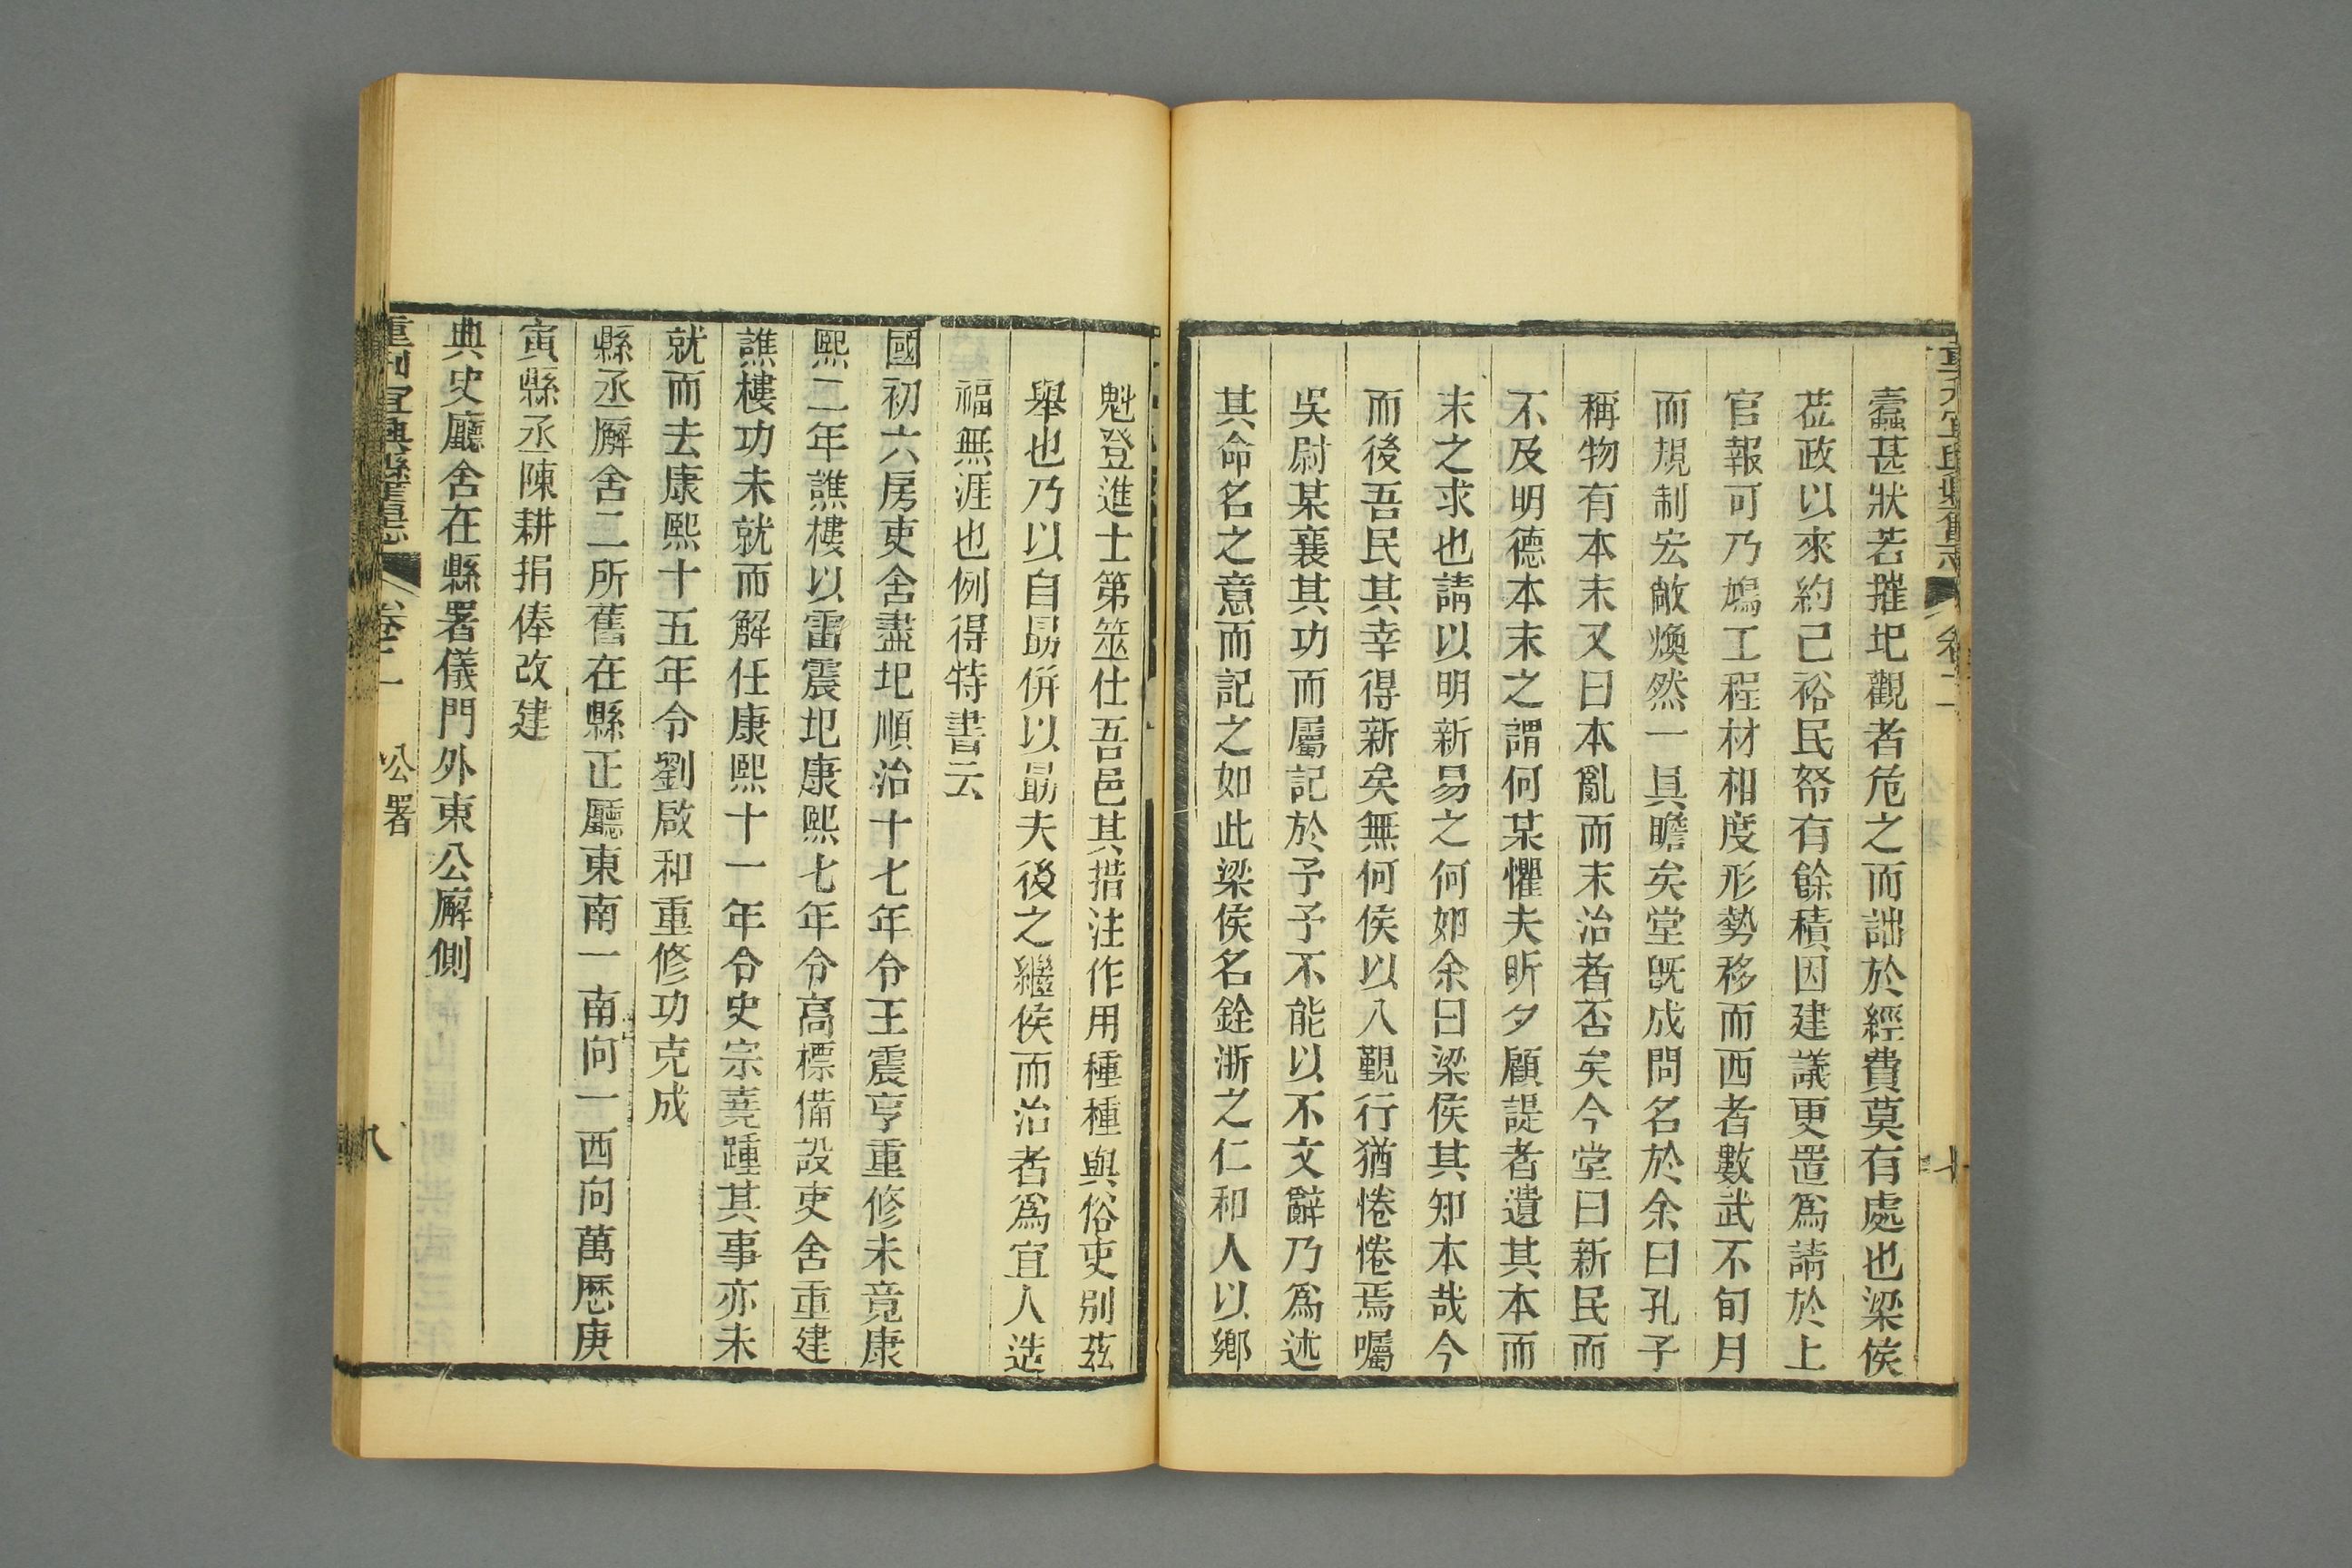 蠧甚狀若摧圯觀者危之而詘於經費莫有處也梁侯
莅政以來約己裕民帑有餘積因建議更置爲請於上
官報可乃鳩工程材相度形勢移而西者數武不旬月
而規制宏敞煥然一具瞻矣堂旣成問名於余曰孔子
稱物有本末又曰本亂而末治者否矣今堂曰新民而
不及明德本末之謂何某懼夫昕夕顧諟者遺其本而
末之求也請以明新易之何如余曰梁侯其知本哉今
而後吾民其幸得新矣無何侯以入覲行猶惓惓焉囑
吳尉某襄其功而屬記於予予不能以不文辭乃爲述
其命名之意而記之如此梁侯名銓浙之仁和人以鄉
魁登進士第筮仕吾邑其措注作用種種與俗吏别茲
舉也乃以自勗併以勗夫後之繼侯而治者爲宜人造
福無涯也例得特書云
國初六房吏舍盡圯順治十七年令王震亨重修未竟康
熙二年譙樓以雷震圯康熙七年令高標備設吏舍重建
譙樓功未就而解任康熙十一年令史宗堯踵其事亦未
就而去康熙十五年令劉啟和重修功克成
縣丞廨舍二所舊在縣正廳東南一南向一西向萬歷庚
寅縣丞陳耕捐俸改建
典史廳舍在縣署儀門外東公廨側
重刊宜興縣舊志 卷二 公署 八